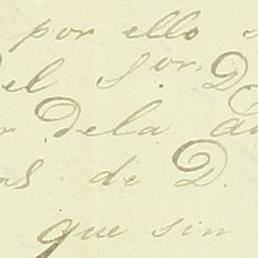 por ello
del S.or D
dela
de D.
que sin